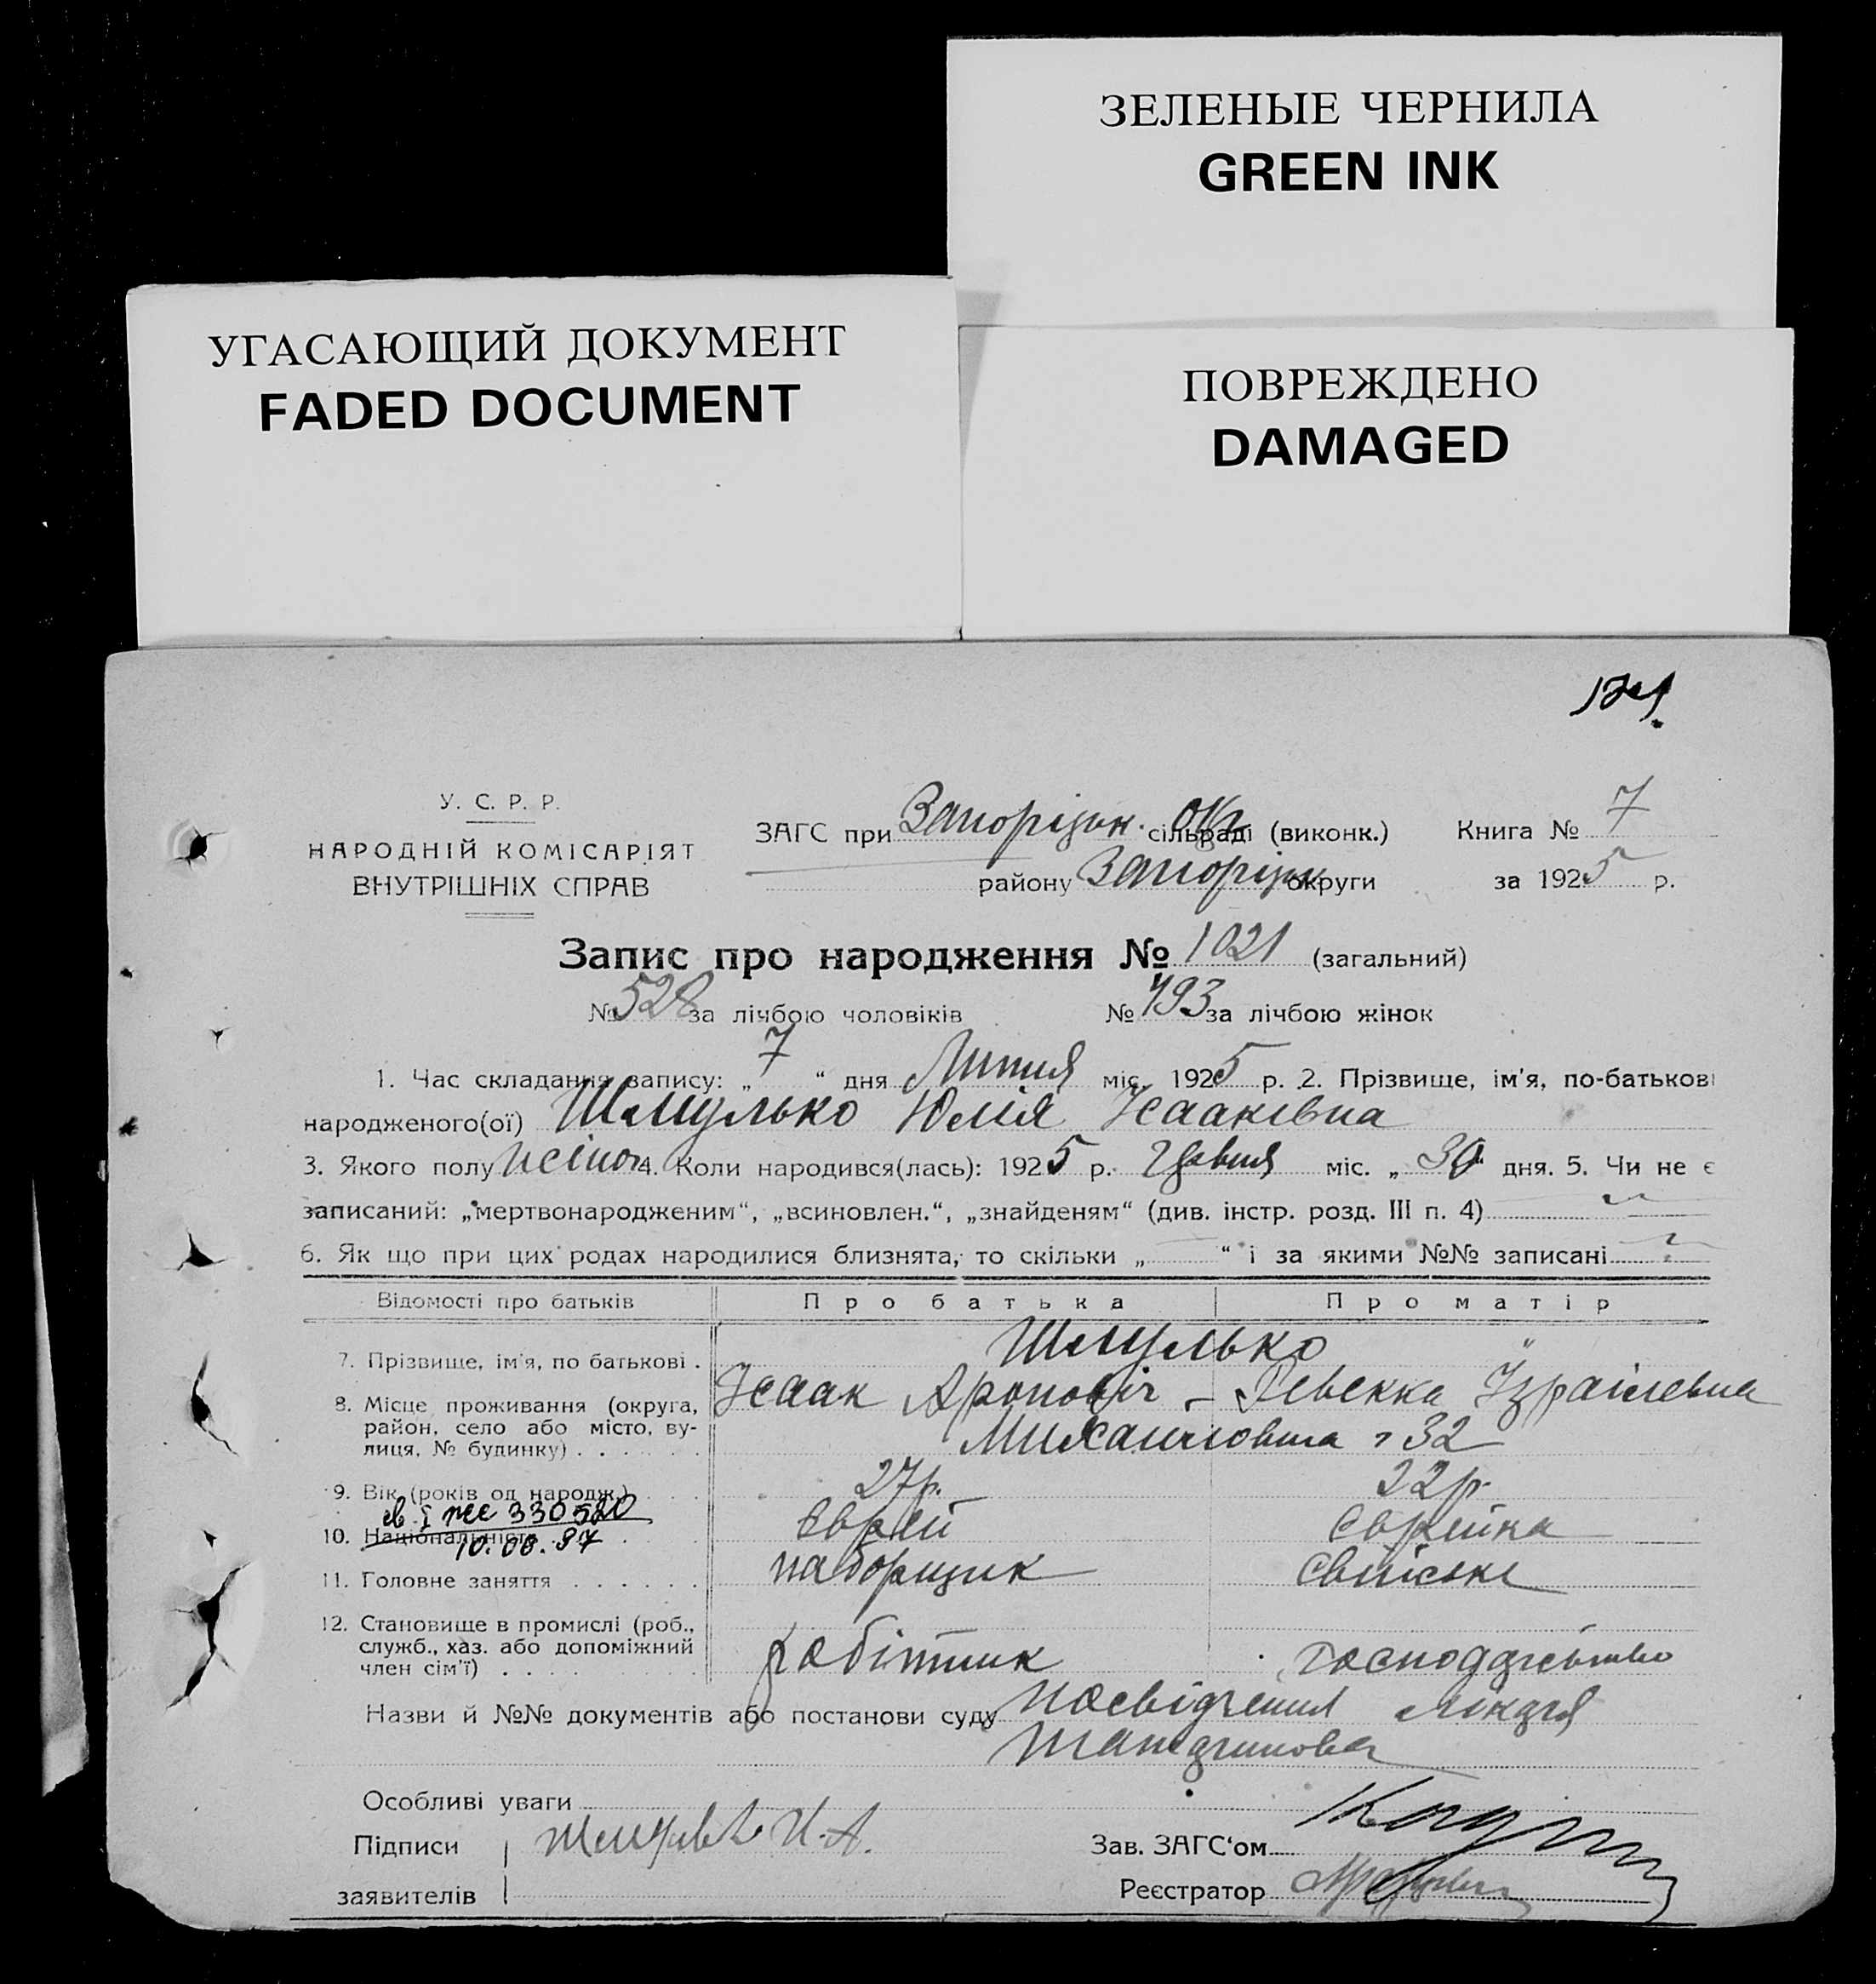 ЗЕЛЕНЫЕ ЧЕРНИЛА
GREEN INK
УГАСАЮЩИЙ ДОКУМЕНТ
FADED DOCUMENT
ПОВРЕЖДЕНО
DAMAGED
У. С. Р. Р.
НАРОДНІЙ КОМІСАРІЯТ
ВНУТРІШНІХ СПРАВ
ЗАГС при Запоріськ. окр сільраді (виконк.)
району Запоріськ округи
Книга № 7
за 1925 р.
Запис про народження № 1021 (загальний)
№ 528 за лічбою чоловіків № 493 за лічбою жінок
1. Час складання запису: „7“ дня Липня міс. 1925 р. 2. Прізвище, ім'я, по-батькові
народженого(ої) Шмулько Юлія Ісааківна
3. Якого полу жіноч 4. Коли народився(лась): 1925 р. Червня міс. „30“ дня. 5. Чи не є
записаний: „мертвонародженим“, „всиновлен.“, „знайденям“ (див. інстр. розд. III п. 4)
6. Як що при цих родах народилися близнята, то скільки „ “ і за якими №№ записані
Відомості про батьків Про батька Про матір
7. Прізвище, ім'я, по батькові . Шмулько "
Ісаак Аронович – Ревекка Ізраілевна
8. Місце проживання (округа, район, село або місто, вулиця, № будинку) . . . . . 32
9. Вік (років од народж.) 27р. 22р.
330520
10.06.87
10. Національність Єврей Єврейка
11. Головне заняття . . . . . . наборщик свійське
12. Становище в промислі (роб., служб., хаз. або допоміжний член сім'ї) . . . . робітник господарство
Назви й №№ документів або постанови суду посвідчення лікаря
Особливі уваги
Підписи
заявителів
Шмулько И. А.
Зав. ЗАГС‘ом
Реєстратор